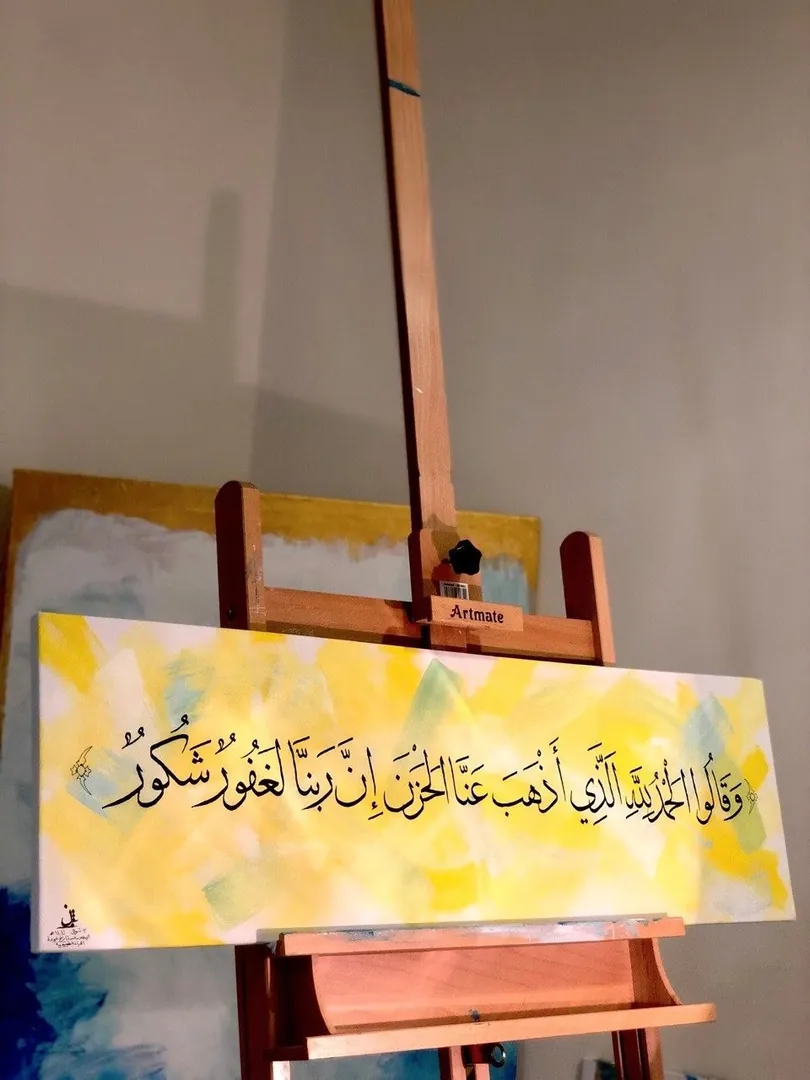 Artmate
وَقَالُوا الْحَمْدُ لِلَّهِ الَّذِي أَذْهَبَ عَنَّا الْحَزَنَ إِنَّ رَبَّنَا لَغَفُورٌ شَكُورٌ